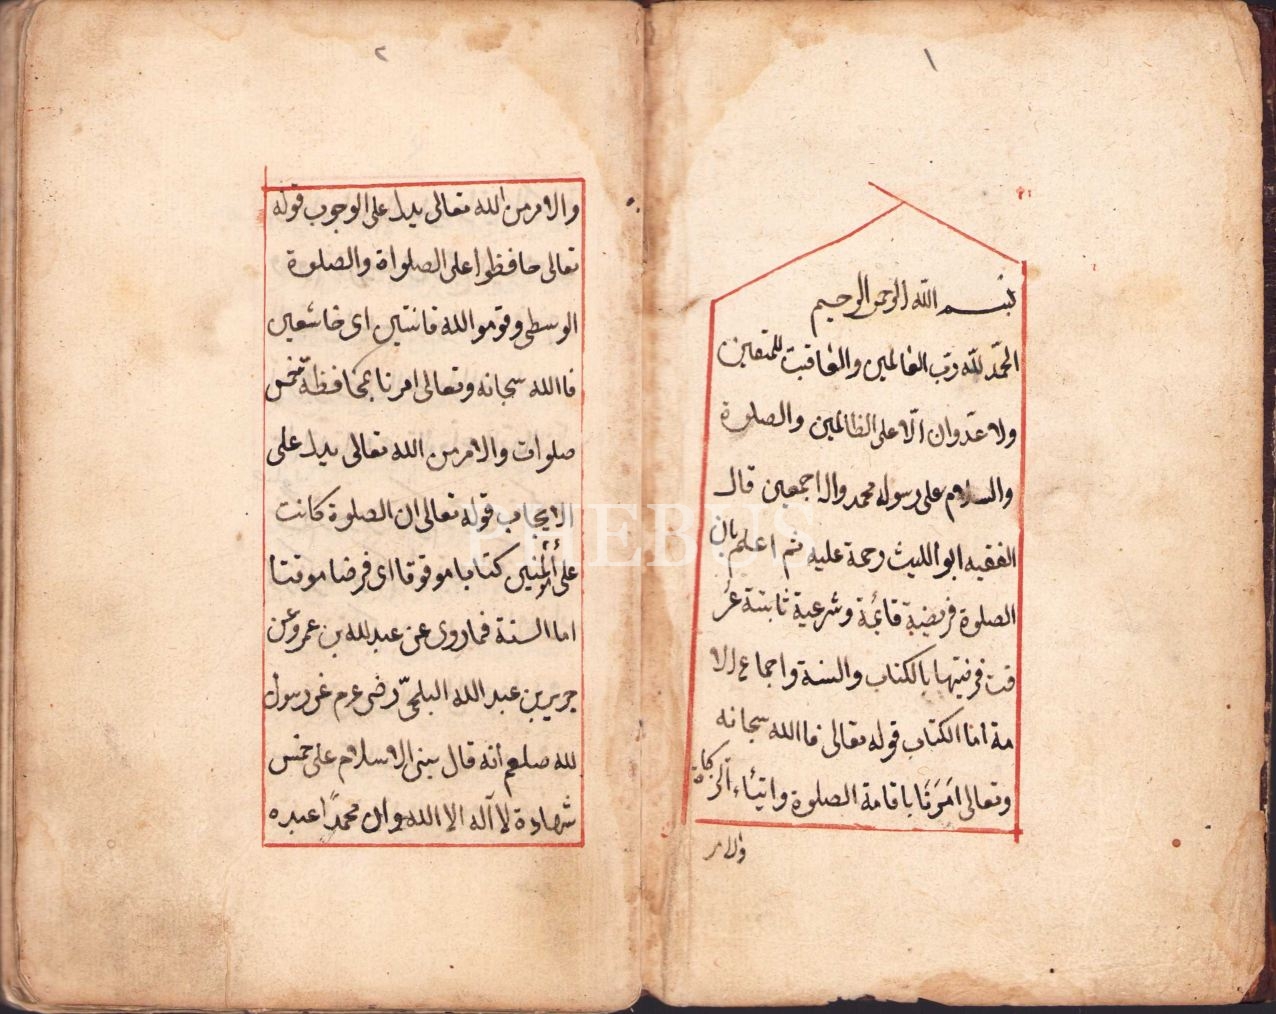 ١
بسم الله الرحمن الرحيم
الحمد لله رب العالمين والعاقبت للمتقين
ولا عدوان الا على الظالمين والصلوة
والسلام على رسوله محمد واله اجمعين قال
الفقيه ابو الليث رحمة عليه ثم اعلم بان
الصلوة فريضية قائمة وشرعية ثابتة عر
فت فرضيتها بالكتاب والسنة واجماع الا
مة اما الكتاب قوله تعالى فاالله سبحانه
وتعالى امرنا باقامة الصلوة وايتاء الزكاة
والامر
٢
والامر من الله تعالى يدل على الوجوب قوله
تعالى حافظوا على الصلواة والصلوة
الوسطى وقوموا لله قانتين اى خاشعين
فاالله سبحانه وتعالى امرنا بمحافظة خمس
صلوات والامر من الله تعالى يدل على
الايجاب قوله تعالى ان الصلوة كانت
على المؤمنين كتابا موقوقا اى فرضا موقتا
اما السنة فما روى عن عبد الله بن عمر وعن
جرير بن عبد الله البلجى رضى عن رسول
لله صلعم انه قال بنى الاسلام على خمس
شهادة لا اله الا الله وان محمدا عبده
PHEBUS